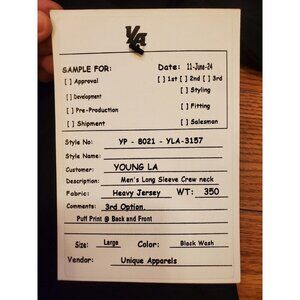 YLA
SAMPLE FOR: Date: 11-June-24
[ ] Approval [ ] 1st [ ] 2nd [ ] 3rd
[ ] Development [ ] Styling
[ ] Pre-Production [ ] Fitting
[ ] Shipment [ ] Salesman
Style No: YP - 8021 - YLA-3157
Style Name:
Customer: YOUNG LA
Description: Men's Long Sleeve Crew neck
Fabric: Heavy Jersey WT: 350
Comments: 3rd Option.
Puff Print @ Back and Front
Size: Large Color: Black Wash
Vendor: Unique Apparels